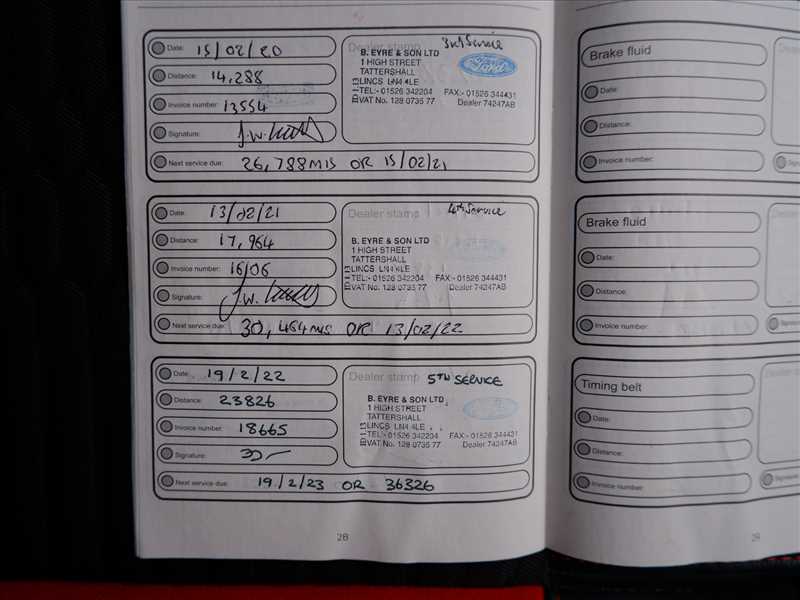 Date: 15/02/20
Distance: 14,288
Invoice number: 13554
Signature:
Next service due: 26,788MIS OR 15/02/21
Dealer stamp 3rd Service
B. EYRE & SON LTD
1 HIGH STREET
TATTERSHALL
LINCS LN4 4LE
TEL:- 01526 342204 FAX:- 01526 344431
VAT No. 128 0735 77 Dealer 74247AB
Ford
Date: 13/02/21
Distance: 17,964
Invoice number: 16106
Signature:
Next service due: 30,464MIS OR 13/02/22
Dealer stamp 4th Service
B. EYRE & SON LTD
1 HIGH STREET
TATTERSHALL
LINCS LN4 4LE
TEL:- 01526 342204 FAX:- 01526 344431
VAT No. 128 0735 77 Dealer 74247AB
Date: 19/2/22
Distance: 23826
Invoice number: 18665
Signature:
Next service due: 19/2/23 OR 36326
Dealer stamp 5TH SERVICE
B. EYRE & SON LTD
1 HIGH STREET
TATTERSHALL
LINCS LN4 4LE
TEL:- 01526 342204 FAX:- 01526 344431
VAT No. 128 0735 77 Dealer 74247AB
28
Brake fluid
Date:
Distance:
Invoice number:
Brake fluid
Date:
Distance:
Invoice number:
Timing belt
Date:
Distance:
Invoice number:
29